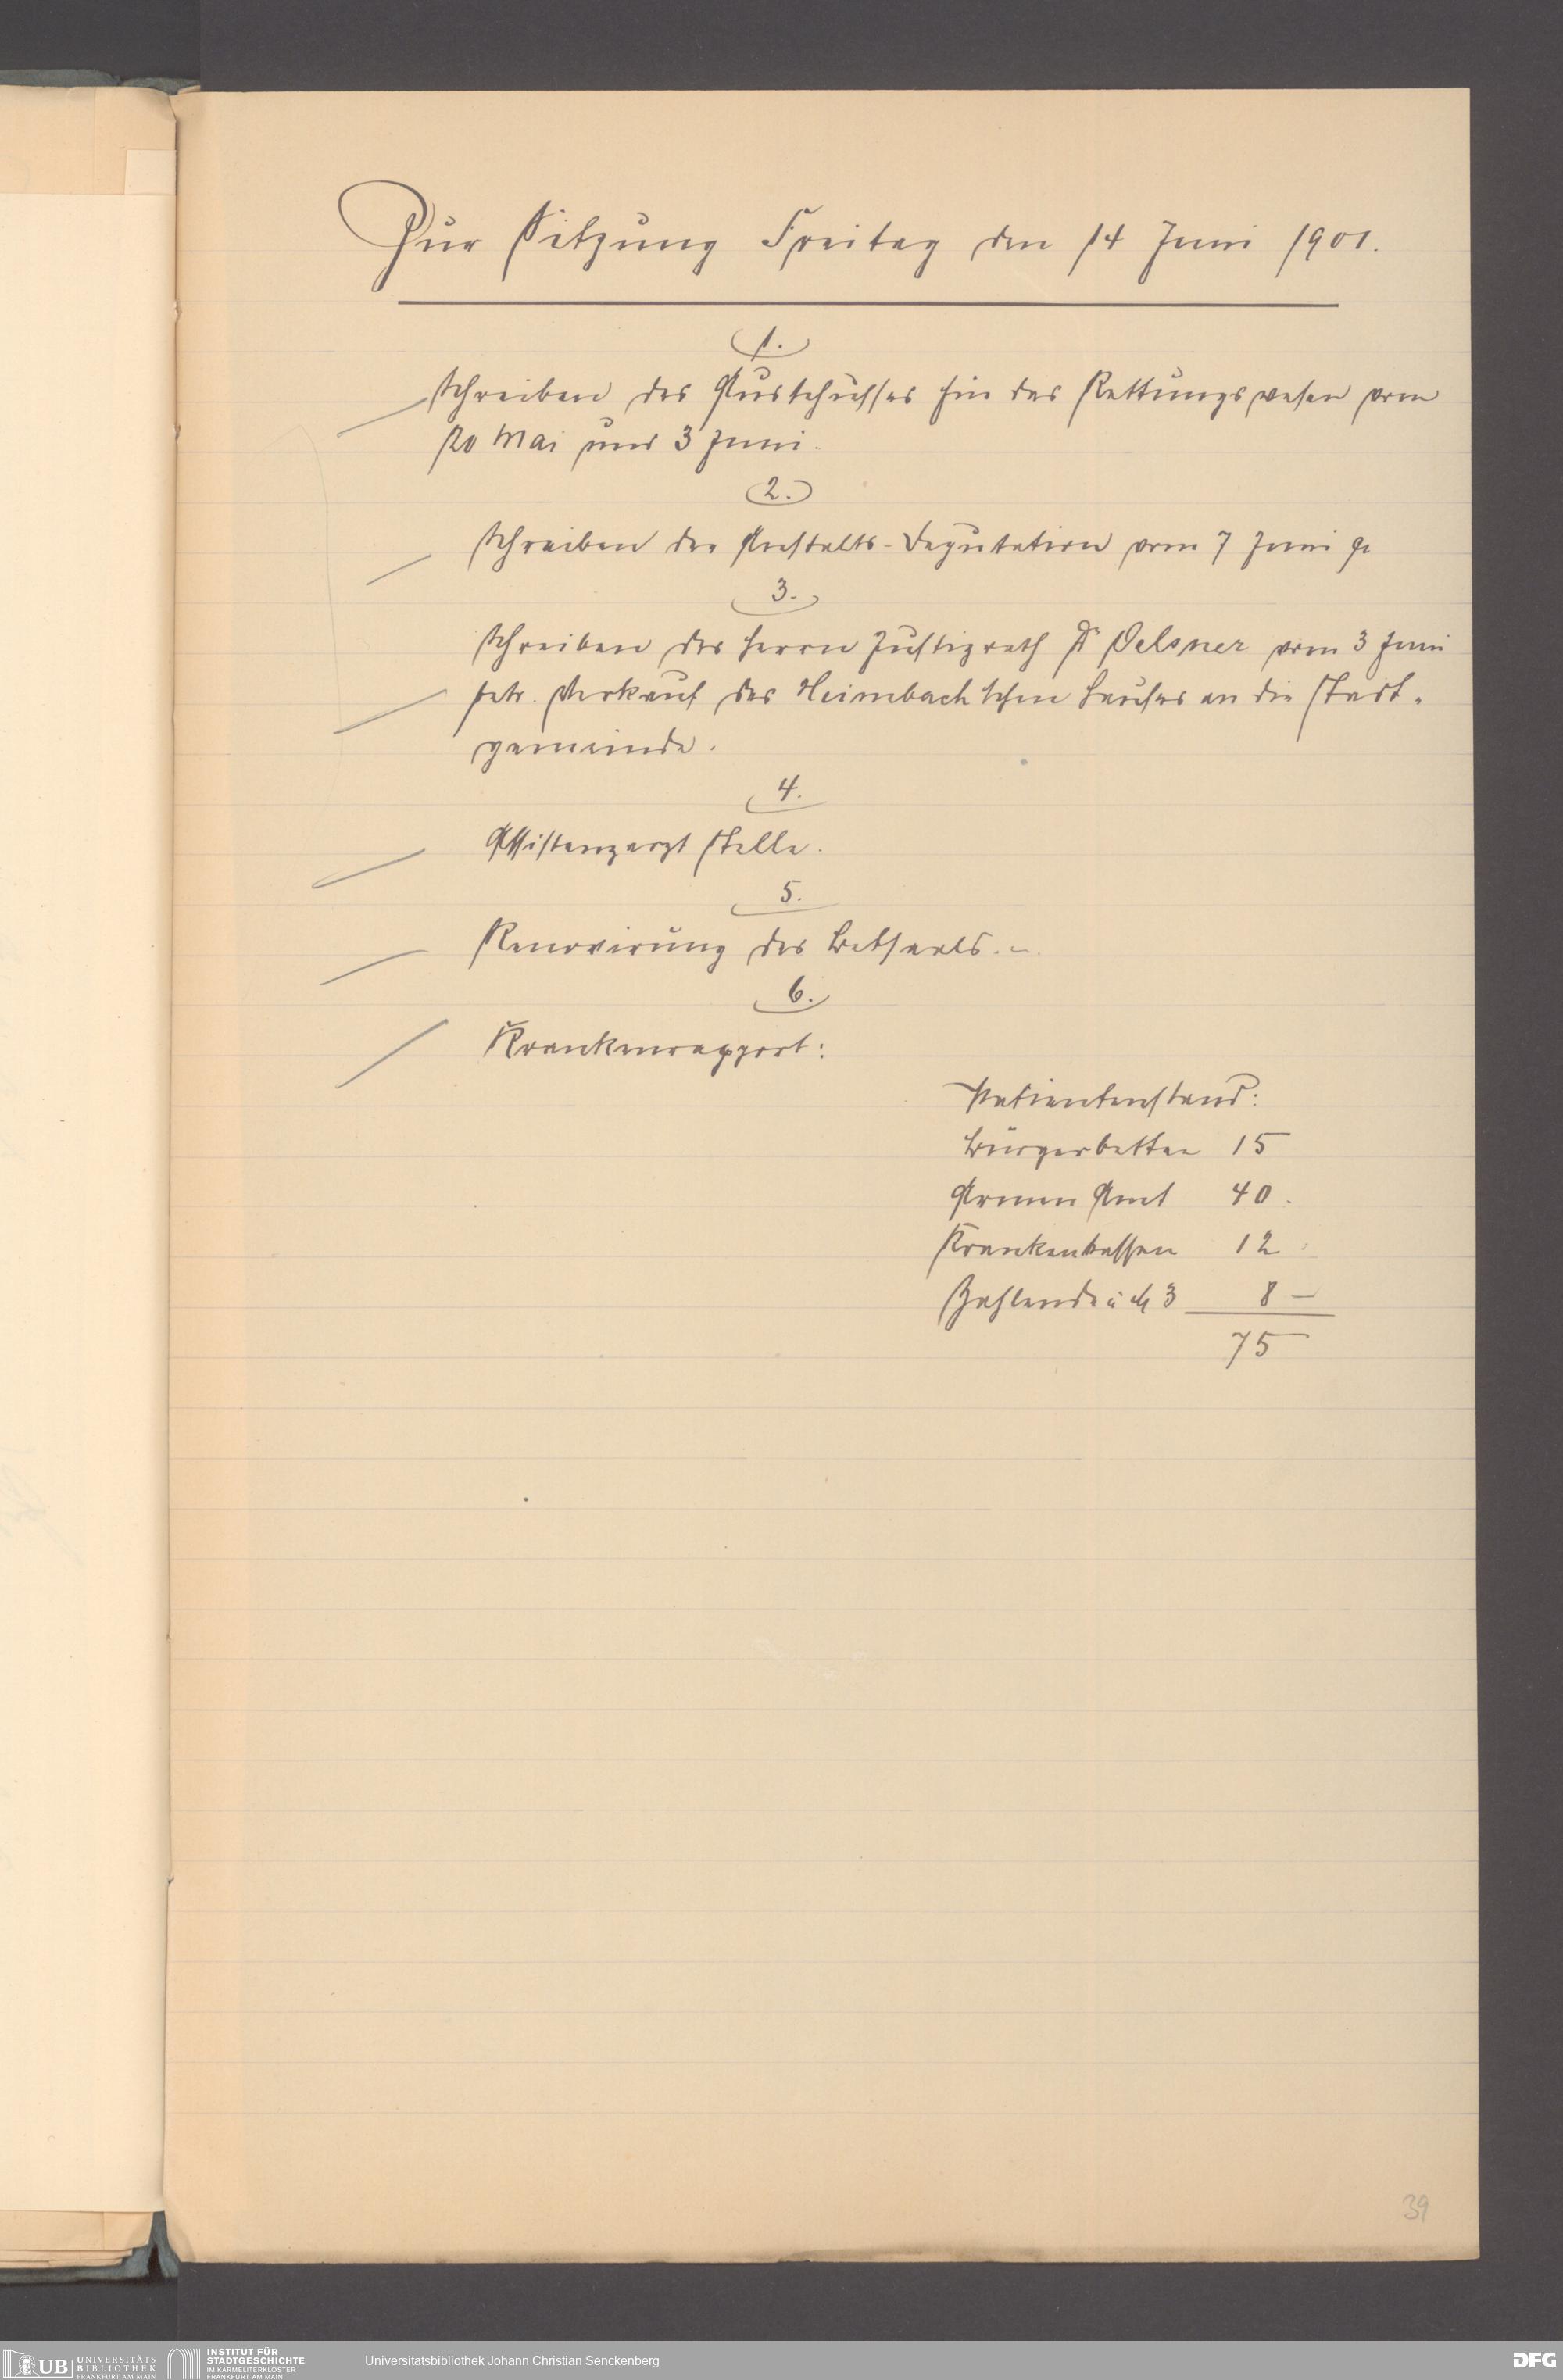 Zur Sitzung Freitag den 14 Juni 1901.
1.
Schreiben des Ausschusses für das Rettungswesen vom
20 Mai und 3 Juni.
2.
Schreiben der Anstalts-Deputation vom 7 Juni
3.
Schreiben des Herrn Justizrath Dr Oelsner vom 3 Juni
betr. Verkauf des Heimbach'schen Hauses an die Stadt-
gemeinde.
4.
Assistenzarzt Stelle.
5.
Renovirung des Betsaals.
6.
Krankenrapport:
Patientenstand:
Bürgerbetten 15
Armen Amt 40.
Krankenkassen 12
Zahlende à M 3 8 –
75
39
UB UNIVERSITÄTS
BIBLIOTHEK
FRANKFURT AM MAIN
INSTITUT FÜR
STADTGESCHICHTE
IM KARMELITERKLOSTER
FRANKFURT AM MAIN
Universitätsbibliothek Johann Christian Senckenberg
DFG